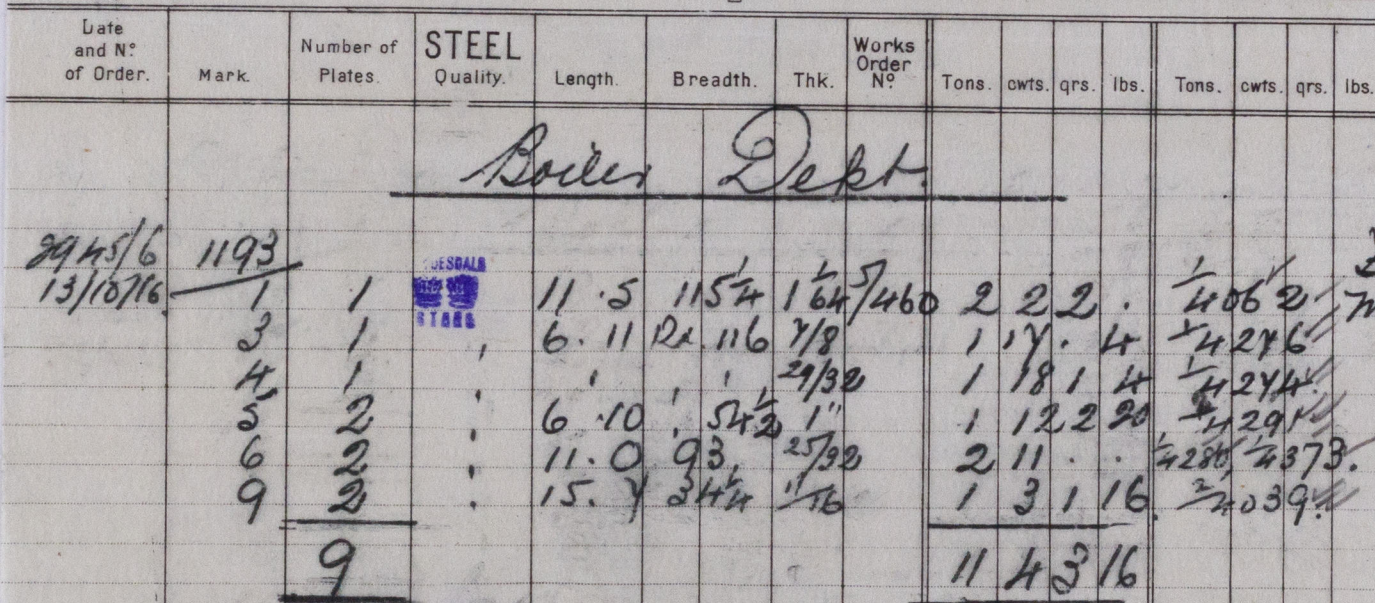 Date and Nº of Order. Mark. Number of Plates. STEEL Quality. Length. Breadth. Thk. Works Order Nº Tons. cwts. qrs. lbs. Tons. cwts. qrs. lbs.
Boiler Dept.
2945/6 1193
13/10/16 1 1 11 . 5 115 1/4 1 1/64 5/460 2 2 2 . 1/4062
3 1 , 6 . 11 Rd. 116 7/8 1 17 . 4 1/4276
4 1 , ' , ' 29/32 1 18 1 4 1/4274
5 2 , 6 . 10 , 54 1/2 1" 1 12 2 20 4291
6 2 , 11 . 0 93 25/32 2 11 . . 1/4286 1/4373.
9 2 . 15 . 7 34 1/4 11/16 1 3 1 16 2/4039
9 11 4 3 16